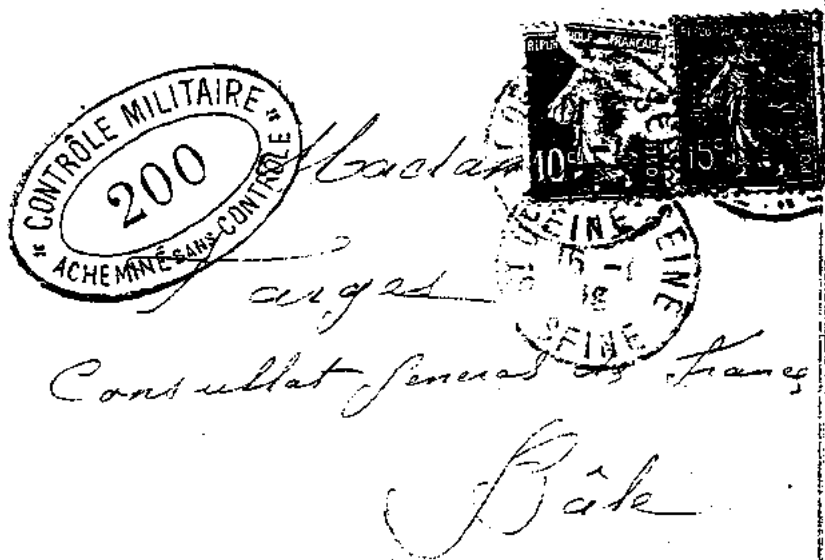 " CONTRÔLE MILITAIRE "
200
ACHEMINÉ SANS CONTRÔLE
RÉPUBLIQUE FRANÇAISE
10c
15c
SEINE
15 1
18
SEINE
Madam
Farges
Consullat General de France
Bâle